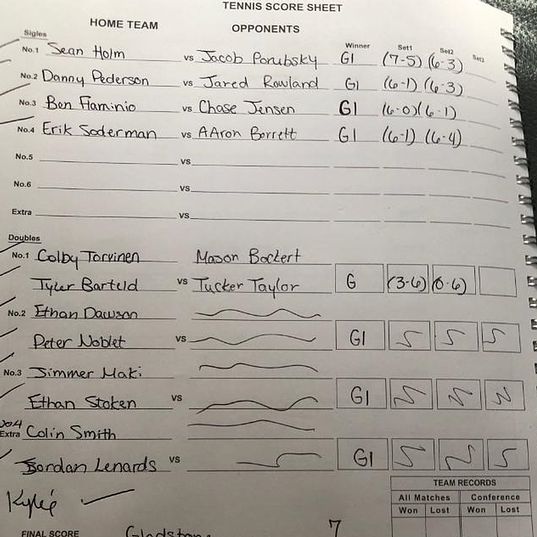 TENNIS SCORE SHEET
HOME TEAM OPPONENTS
Sigles Winner Set1 Set2 Set3
No.1 Sean Holm vs Jacob Porubsky G1 (7-5) (6-3)
No.2 Danny Pederson vs Jared Rowland G1 (6-1) (6-3)
No.3 Ben Flaminio vs Chase Jensen G1 (6-0) (6-1)
No.4 Erik Soderman vs AAron Berrett G1 (6-1) (6-4)
No.5 vs
No.6 vs
Extra vs
Doubles
No.1 Colby Torvinen Mason Bockert
Tyler Barteld vs Tucker Taylor G (3-6) (0-6)
No.2 Ethan Dawson
Peter Noblet vs G1
No.3 Simmer Maki
Ethan Stoken vs G1
No4
Extra Colin Smith
Jordan Lenards vs G1
Kylee
TEAM RECORDS
All Matches Conference
Won Lost Won Lost
FINAL SCORE 7